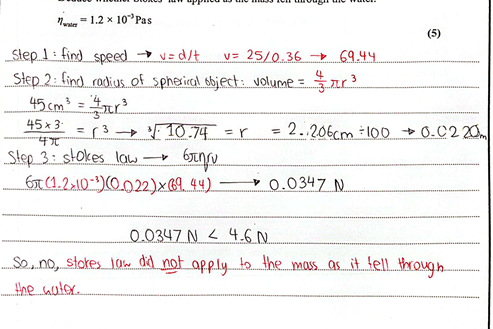 Deduce whether Stokes' law applied as the mass fell through the water.
η_water = 1.2 × 10⁻³ Pa s
(5)
Step 1: find speed → v=d/t v= 25/0.36 → 69.44
Step 2: find radius of spherical object: volume = 4/3 πr³
45cm³ = 4/3 πr³
45×3/4π = r³ → ³√10.74 = r = 2.206cm ÷100 → 0.0220m
Step 3: stokes law → 6πηrv
6π(1.2×10⁻³)(0.022)×(69.44) → 0.0347 N
0.0347 N < 4.6 N
So, no, stokes law did not apply to the mass as it fell through
the water.